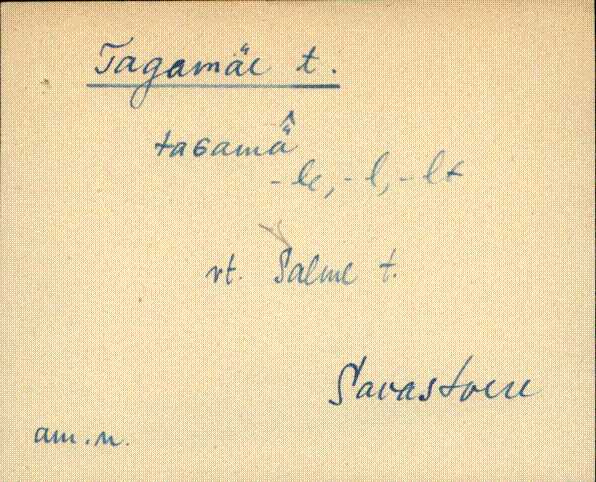 Tagamäe t.
taɢamä̂
-le, -l, -lt
rt. Salme t.
Savastvere
am.n.